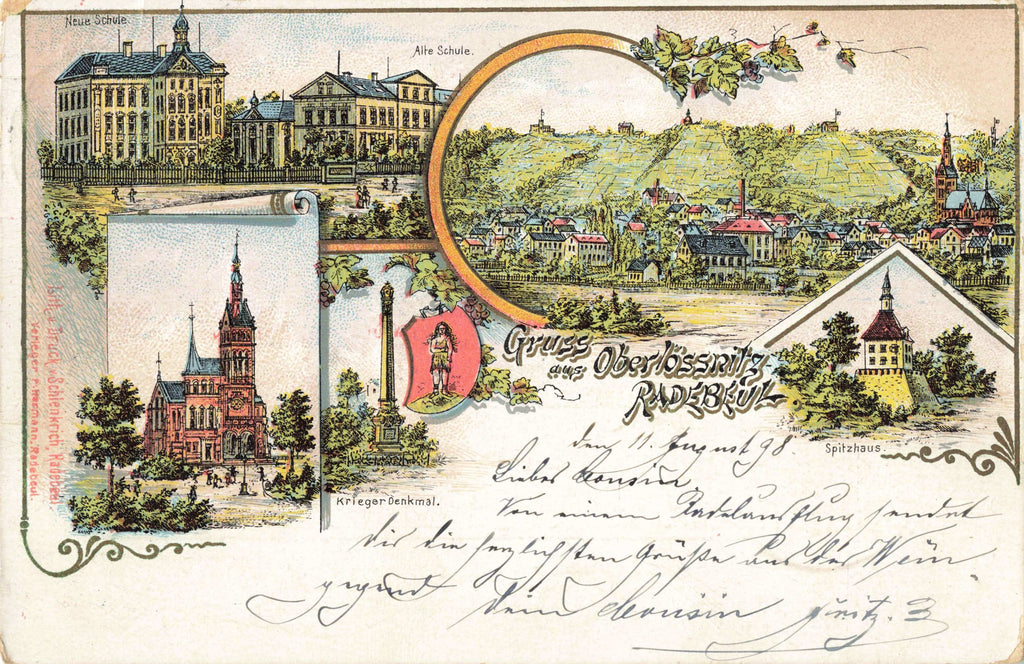 Neue Schule
Alte Schule.
Gruss
aus Oberlössnitz-
RADEBEUL
Spitzhaus.
Krieger Denkmal.
Lith. u. Druck v. Schlenkrich, Radebeul.
Verleger P. Hermann, Radebeul.
den 11. August 98.
Liebes Cousin.
Von einem Radelausflug sendet
dir die herzlichsten Grüße aus der Wein
gegend dein Cousin Fritz.